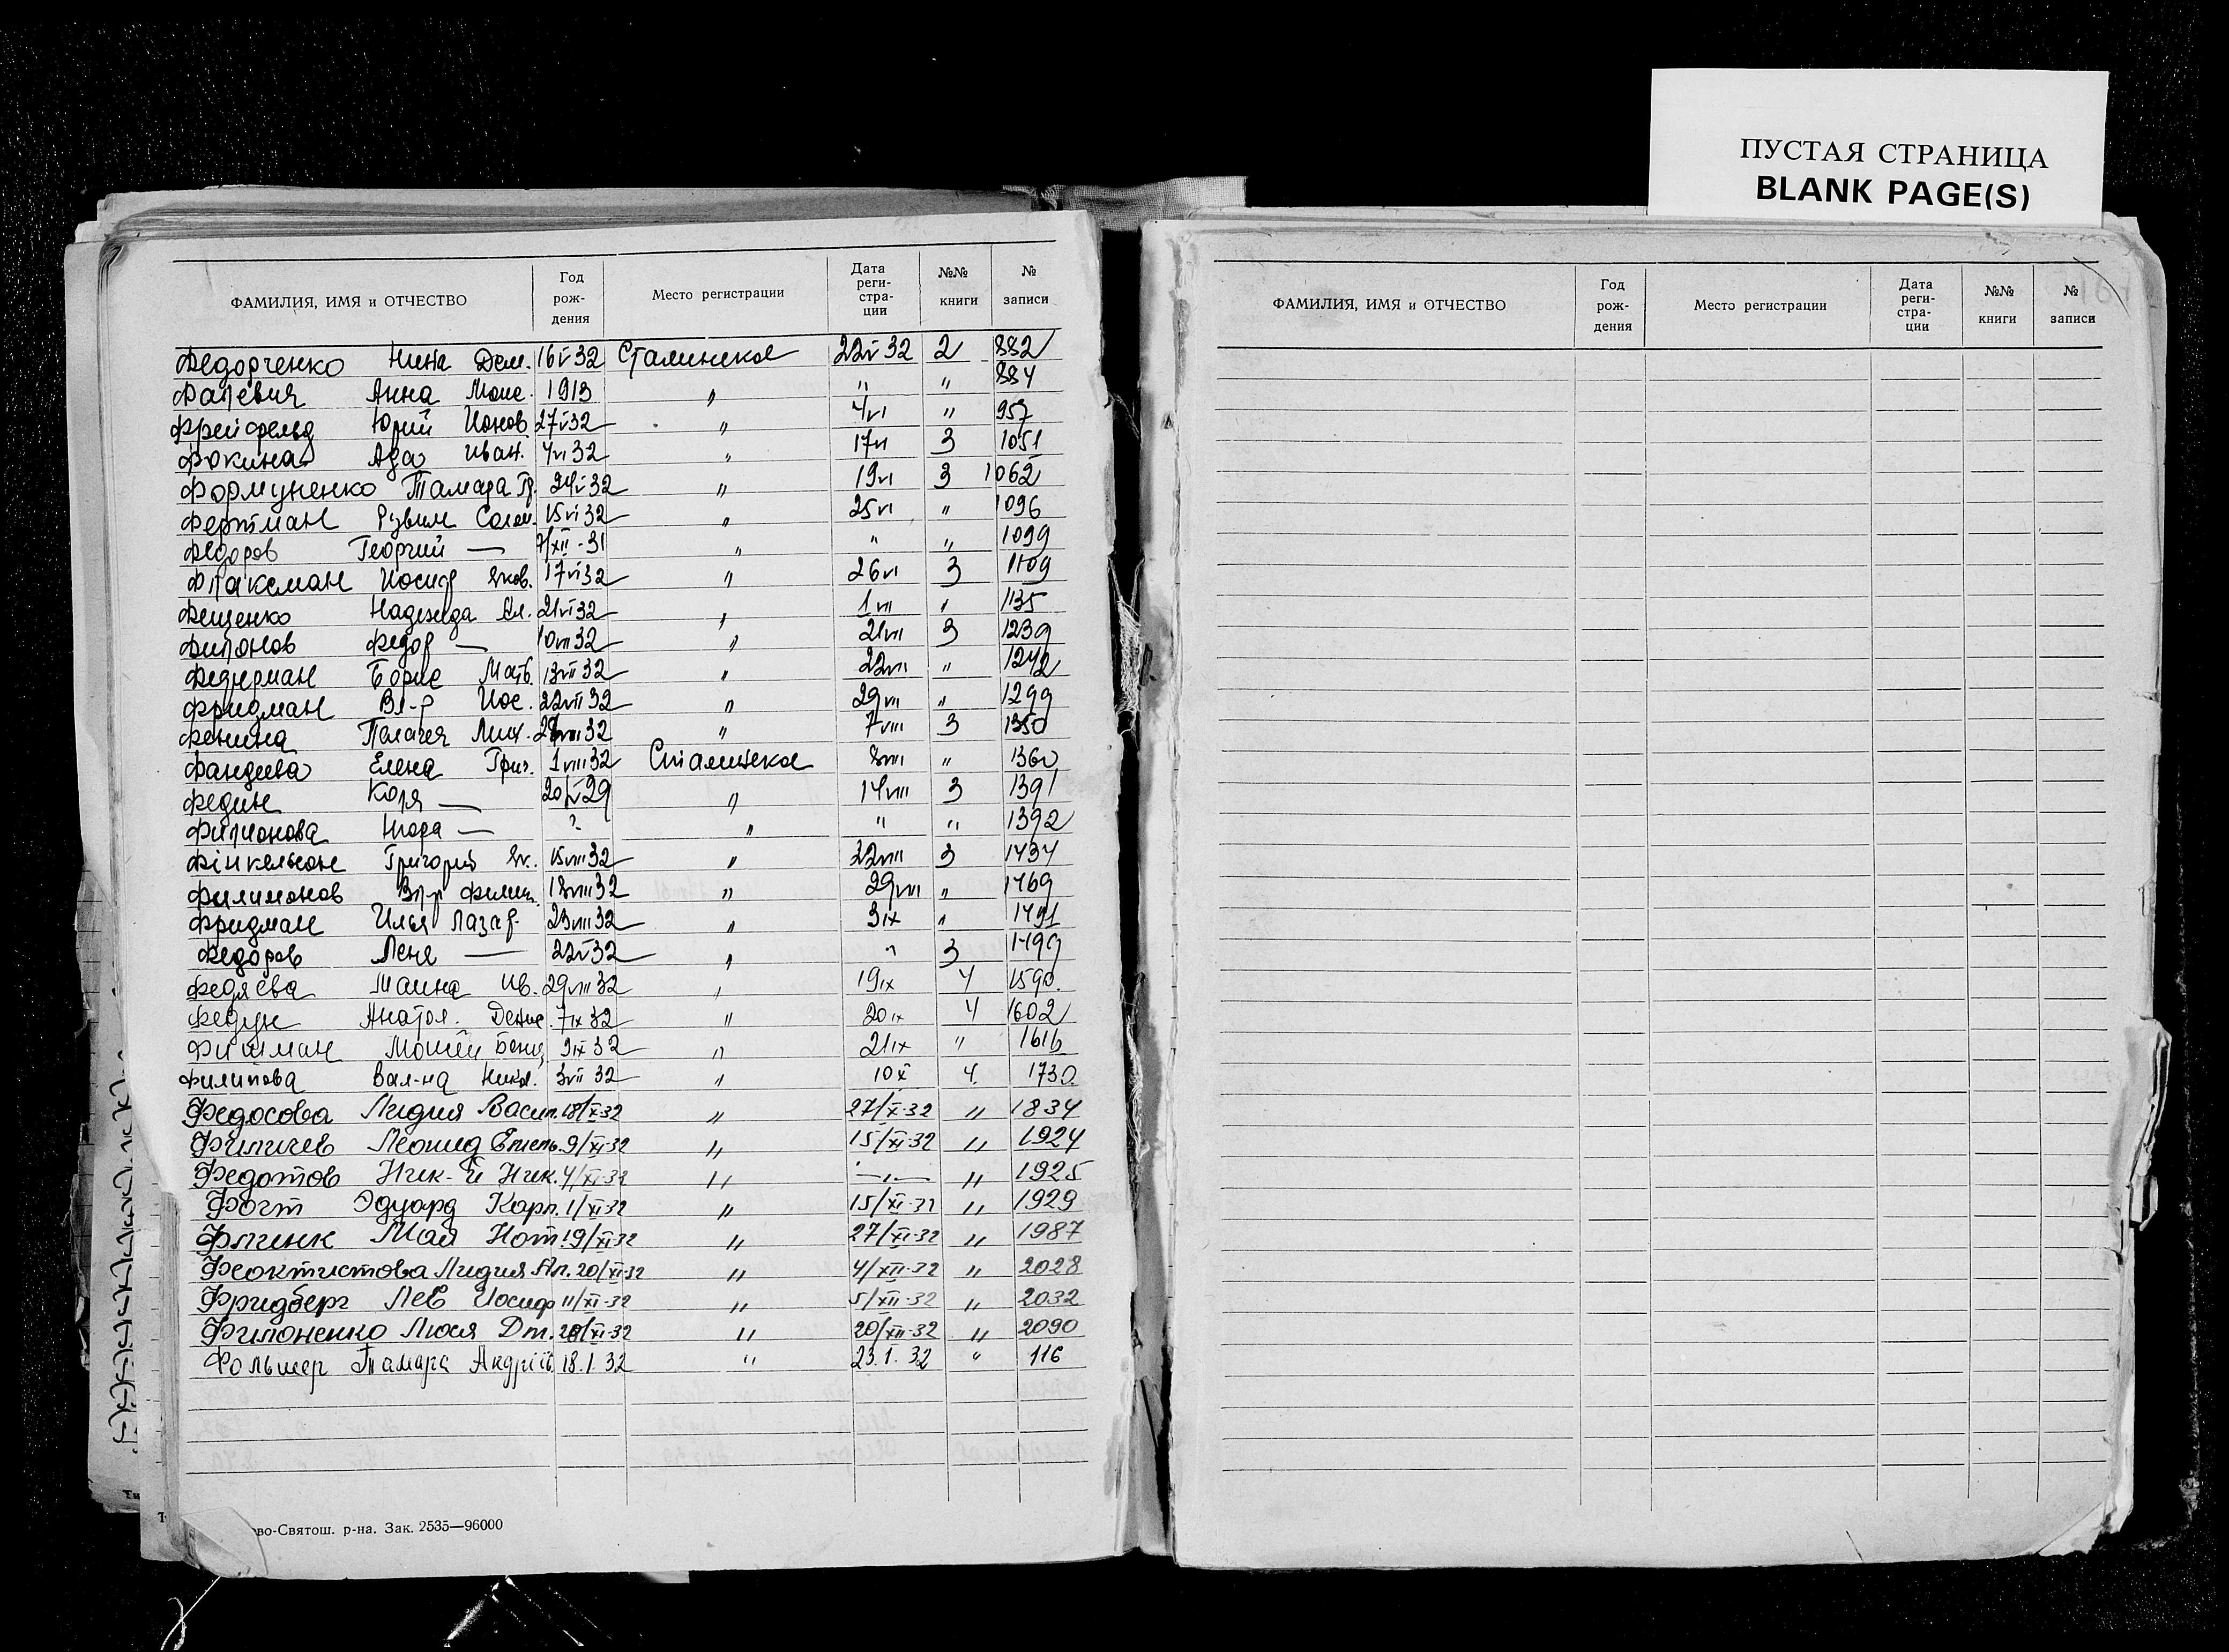 ПУСТАЯ СТРАНИЦА
BLANK PAGE(S)
ФАМИЛИЯ, ИМЯ и ОТЧЕСТВО Год рож- дения Место регистрации Дата реги- стра- ции №№ книги № записи
Федорченко Нина Дем. 16 V 32 Сталинское 22 V 32 2 882
Анна Моис. 1913 " " " 884
Фрейфельд Юрий Ионов. 27 V 32 " 4 VI " 957
Фокина Ада Иван. 4 VI 32 " 17 VI 3 1051
Тамара Гр. 24 V 32 " 19 VI 3 1062
Фертман Рувим Солом. 15 VI 32 " 25 VI " 1096
Федоров Георгий — 7/XII-31 " " " 1099
Флаксман Иосиф Яков. 17 VI 32 " 26 VI 3 1109
Фещенко Надежда Ал. 21 VI 32 " 1 VII " 1135
Филонов Федор — 10 VII 32 " 21 VII 3 1239
Борис Матв. 13 VII 32 " 22 VII " 1242
Фридман Вл-р Иос. 22 VII 32 " 29 VII " 1299
Фенина Пелагея Мих. VIII 32 " 7 VIII 3 1350
Фандиева Елена Григ. 1 VIII 32 Сталинское 8 VIII " 1360
Федин Коля — 20/V 29 " 14 VIII 3 1391
Филионова Нюра — ? " " " 1392
Григорий Як. 15 VIII 32 " 22 VIII 3 1434
Филимонов Вл-р Филип. 18 VIII 32 " 29 VIII " 1469
Фридман Илья Лазар. 23 VIII 32 " 3 IX " 1491
Федоров Леня — 22 V 32 " " 3 1499
Федяева Маина Ив. 29 VIII 32 " 19 IX 4 1590.
Федун Анатол. Денис. 7 IX 32 " 20 IX 4 1602
Фишман Мошей Бенц. 9 IX 32 " 21 IX " 1616
Филипова Вал-на Никол. 3 VII 32 " 10 X 4. 1730.
Федосова Лидия Васил. 18/X-32 " 27/X-32 " 1834
Филичев Леонид Емель. 9/XI-32 " 15/XI-32 " 1924
Федотов Ник-й Ник. 4/XI-32 " —"— " 1925
Фогт Эдуард Карл. 1/XI-32 " 15/XI-32 " 1929
Флинк Мая Нот. 19/XI-32 " 27/XI-32 " 1987
Феоктистова Лидия Ал. 20/XI-32 " 4/XII-32 " 2028
Фридберг Лев Иосиф 11/XI-32 " 5/XII-32 " 2032
Филоненко Люся Дм. 28/XI-32 " 20/XII-32 " 2090
Фольмер Тамара Андріїв. 18.1.32 " 23.1.32 " 116
ово-Святош. р-на. Зак. 2535—96000
ФАМИЛИЯ, ИМЯ и ОТЧЕСТВО Год рож- дения Место регистрации Дата реги- стра- ции №№ книги № записи